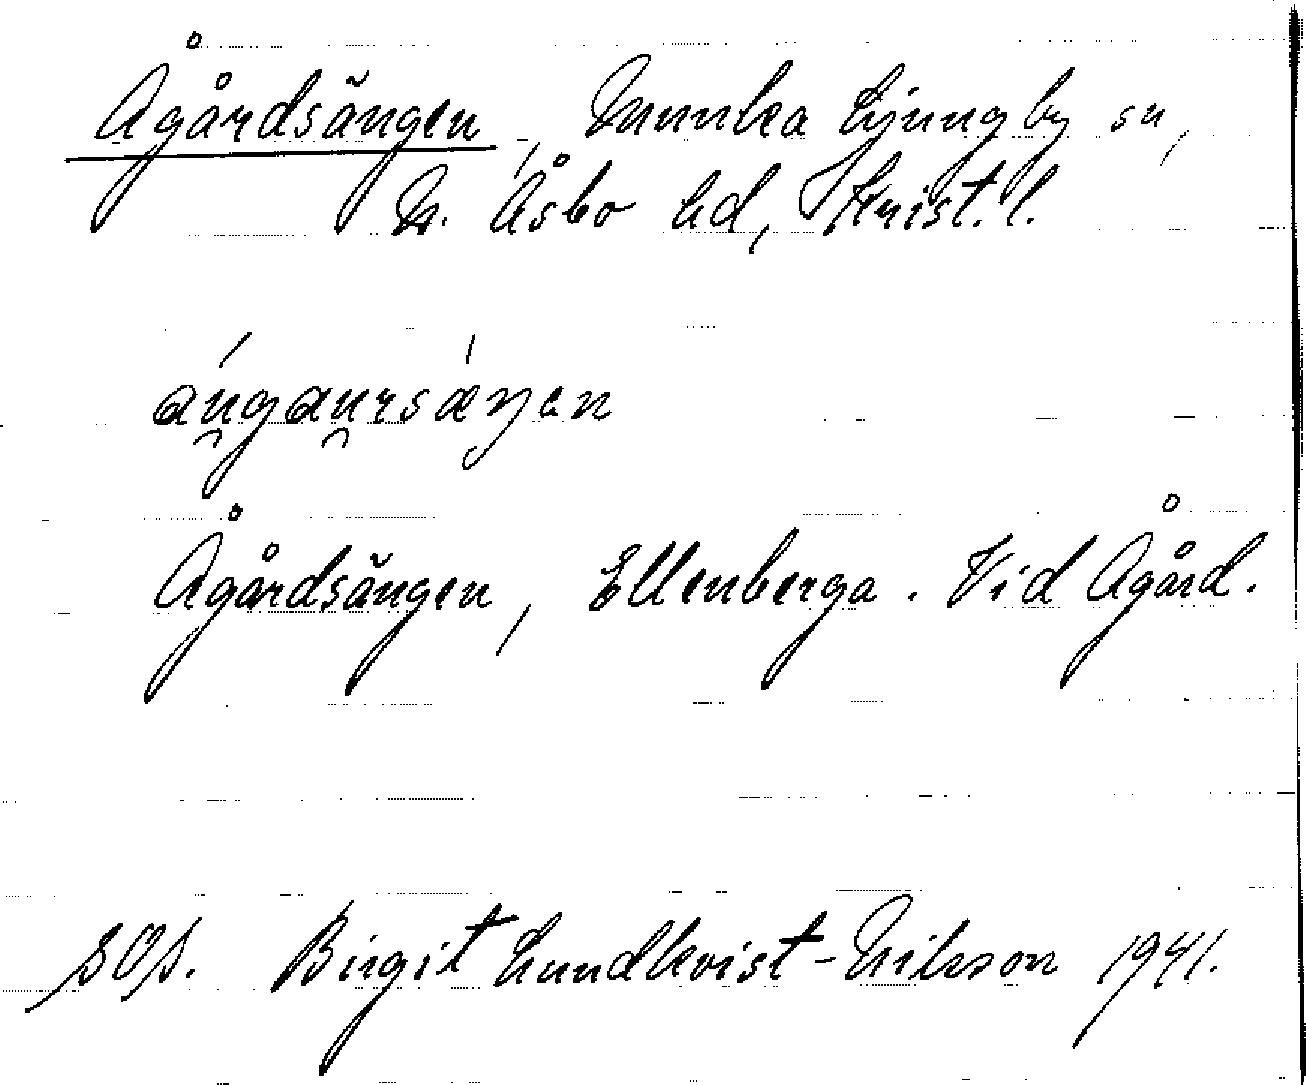 Ågårdsängen, Munka Ljungby sn,
N. Åsbo hd, Krist. l.
áu̯gau̯rsæŋən
Ågårdsängen, Ellenberga. Vid Ågård.
SOS. Birgit Lundkvist-Nilsson 1941.